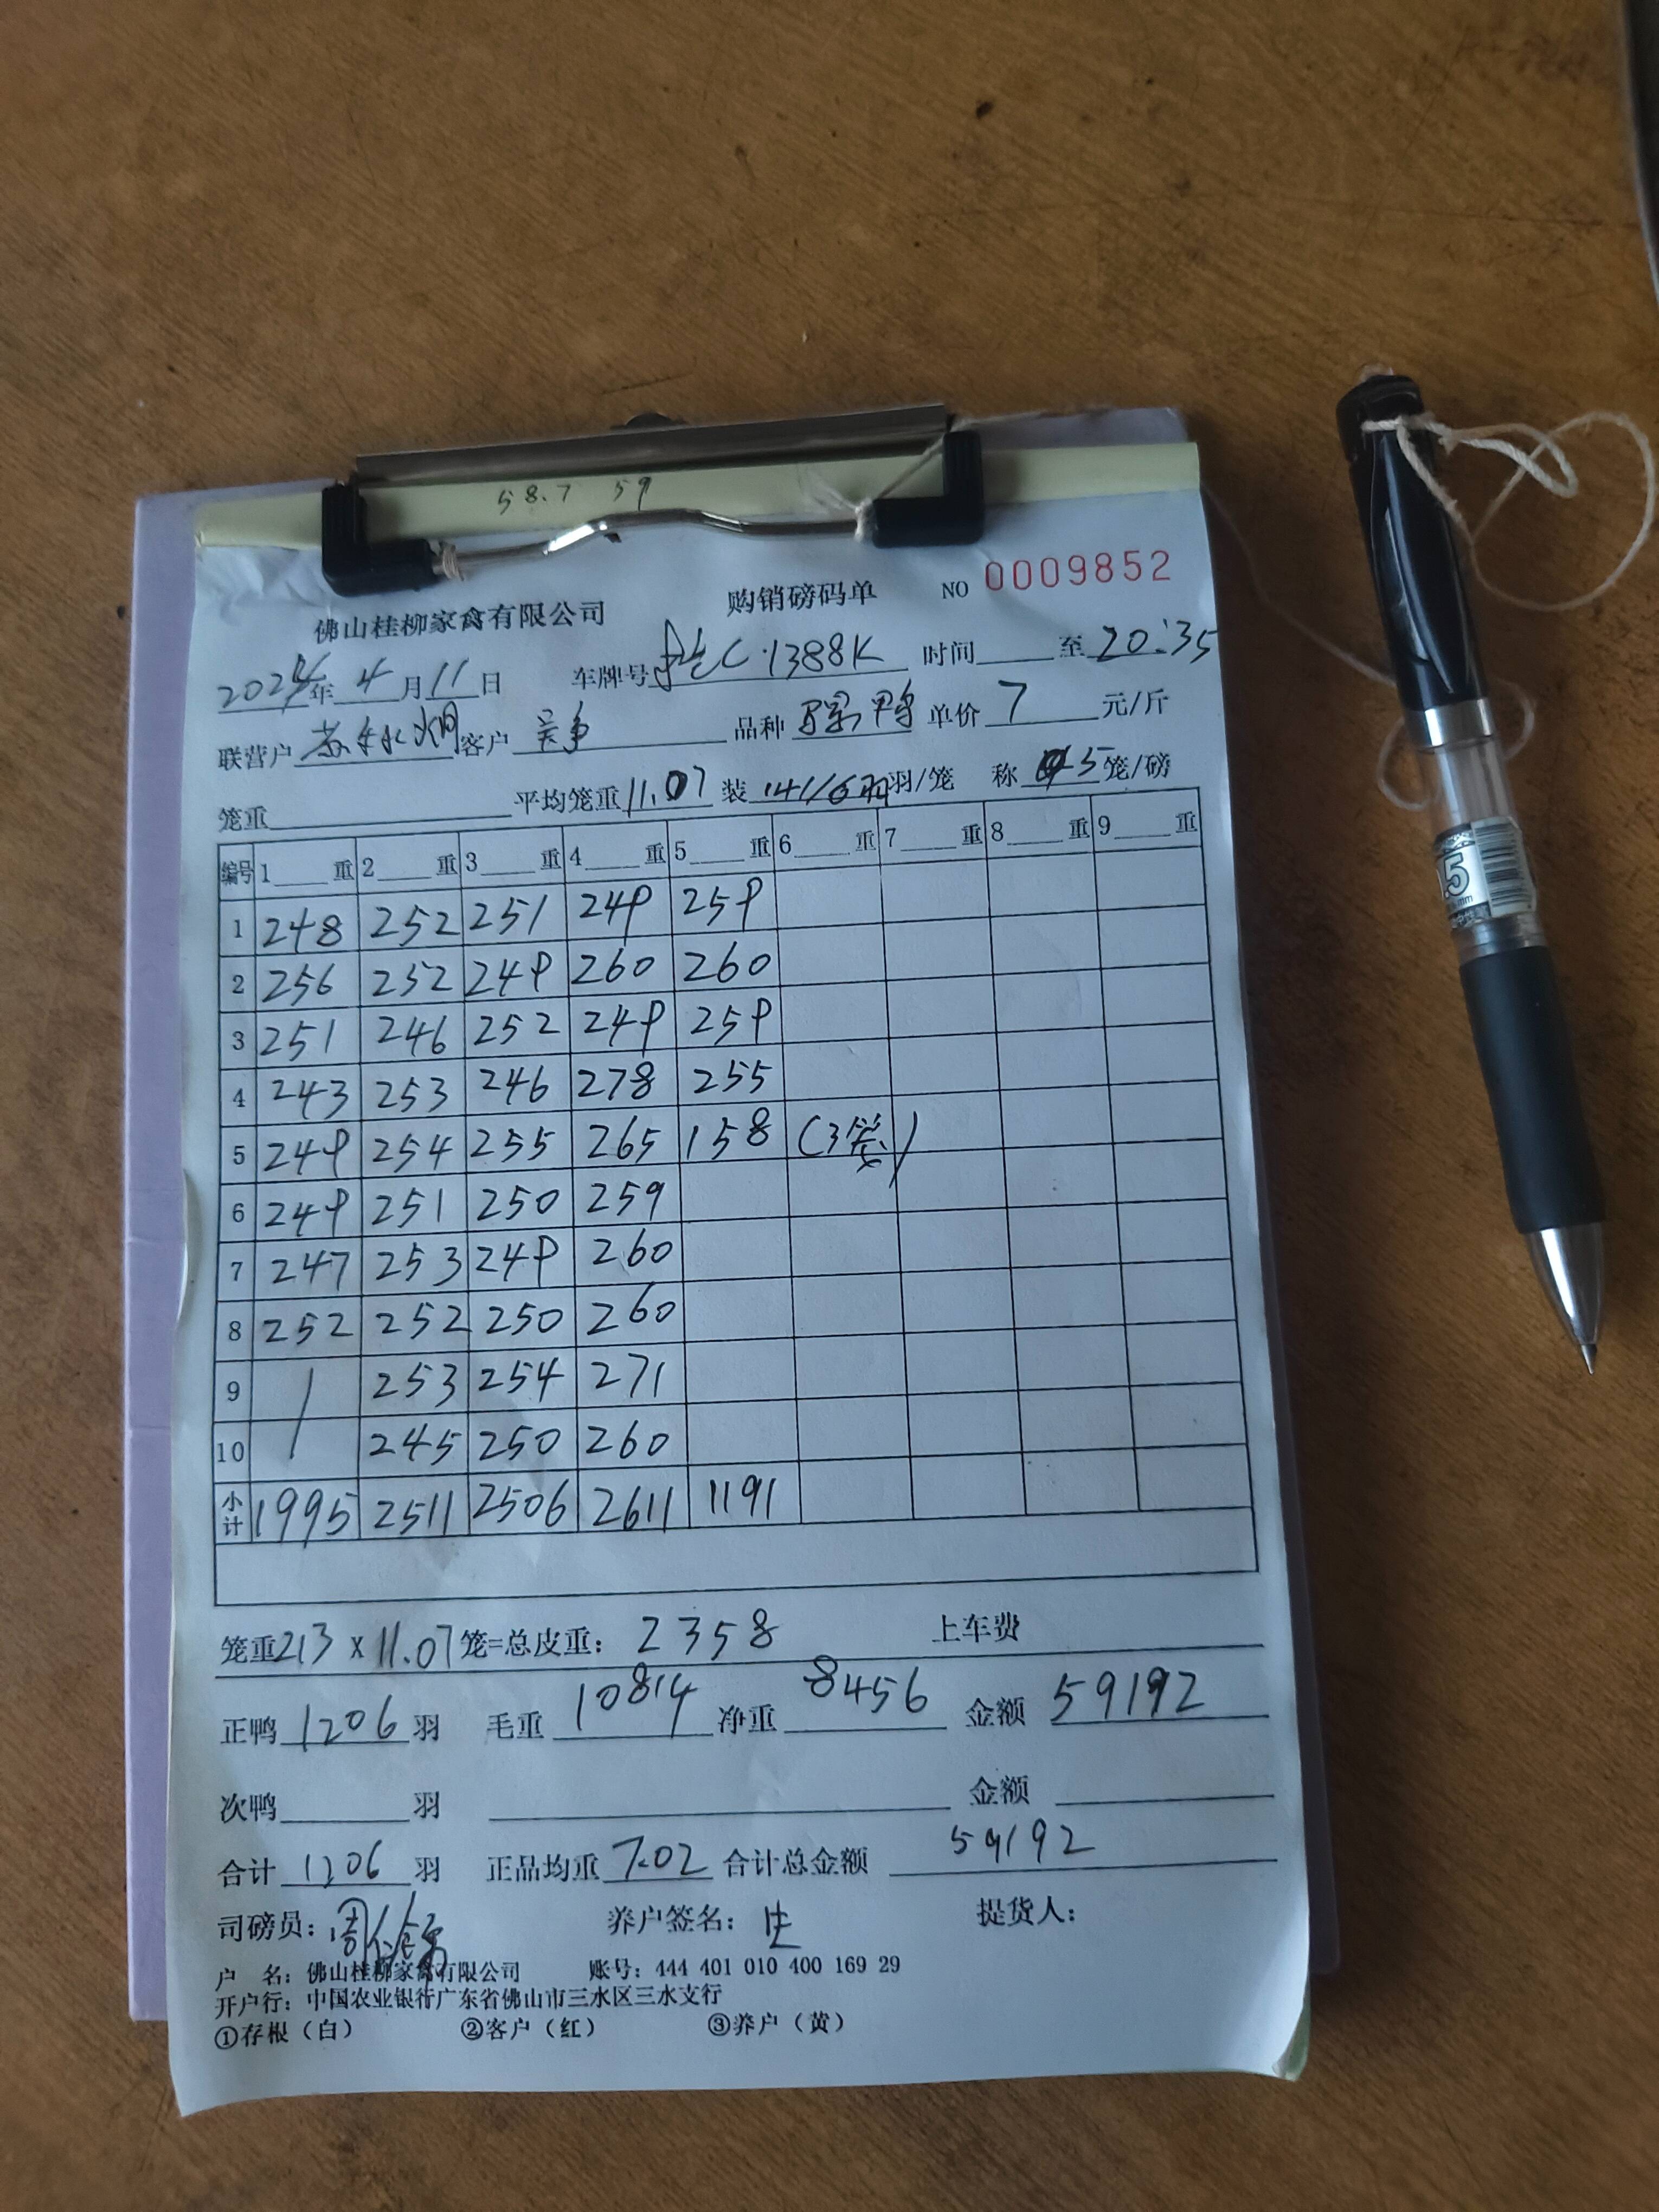 58.7 59
佛山桂柳家禽有限公司 购销磅码单 NO 0009852
2024年 4 月 11 日 车牌号 C·1388K 时间 至 20:35
联营户 客户 品种 鸭 单价 7 元/斤
笼重 平均笼重 11.07 装 羽/笼 称 5 笼/磅
编号 1 重 2 重 3 重 4 重 5 重 6 重 7 重 8 重 9 重
1 248 252 251 249 259
2 256 252 249 260 260
3 251 246 252 249 259
4 243 253 246 278 255
5 249 254 255 265 158 (3笼)
6 249 251 250 259
7 247 253 249 260
8 252 252 250 260
9 / 253 254 271
10 245 250 260
小计 1995 2511 2506 2611 1191
笼重 213 x 11.07 笼=总皮重: 2358 上车费
正鸭 1206 羽 毛重 10814 净重 8456 金额 59192
次鸭 羽 金额
合计 1206 羽 正品均重 7.02 合计总金额 59192
司磅员: 养户签名: 提货人:
户 名: 佛山桂柳家禽有限公司 账号: 444 401 010 400 169 29
开户行: 中国农业银行广东省佛山市三水区三水支行
①存根（白） ②客户（红） ③养户（黄）